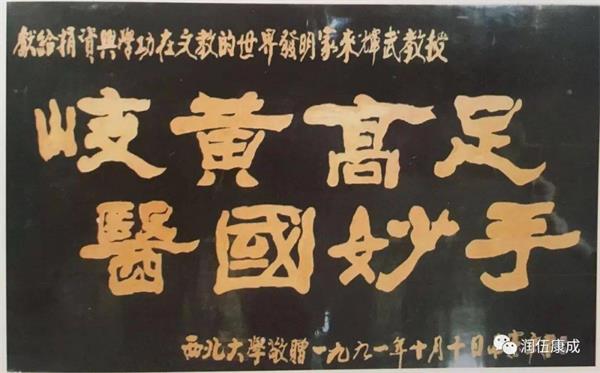 獻給捐資興學功在文教的世界發明家來輝武教授
岐黃高足
醫國妙手
西北大學敬贈一九九一年十月十日
润伍康成